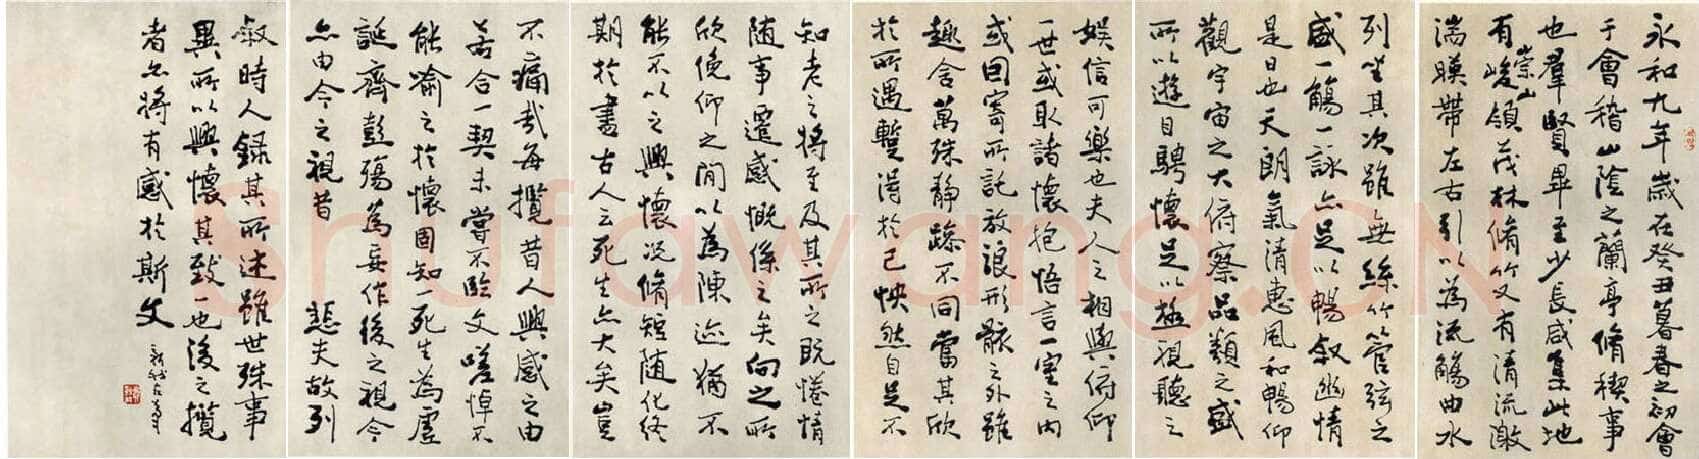 永和九年歲在癸丑暮春之初會
于會稽山陰之蘭亭脩禊事
也羣賢畢至少長咸集此地
有崇山峻領茂林脩竹又有清流激
湍暎帶左右引以為流觴曲水
列坐其次雖無絲竹管弦之
盛一觴一詠亦足以暢敘幽情
是日也天朗氣清惠風和暢仰
觀宇宙之大俯察品類之盛
所以遊目騁懷足以極視聽之
娛信可樂也夫人之相與俯仰
一世或取諸懷抱悟言一室之內
或因寄所託放浪形骸之外雖
趣舍萬殊靜躁不同當其欣
於所遇蹔得於己怏然自足不
知老之將至及其所之既惓情
隨事遷感慨係之矣向之所
欣俛仰之閒以為陳迹猶不
能不以之興懷況脩短隨化終
期於盡古人云死生亦大矣豈
不痛哉每攬昔人興感之由
若合一契未嘗不臨文嗟悼不
能喻之於懷固知一死生為虛
誕齊彭殤為妄作後之視今
亦由今之視昔 悲夫故列
敘時人錄其所述雖世殊事
異所以興懷其致一也後之攬
者亦將有感於斯文
Shufawang.CN